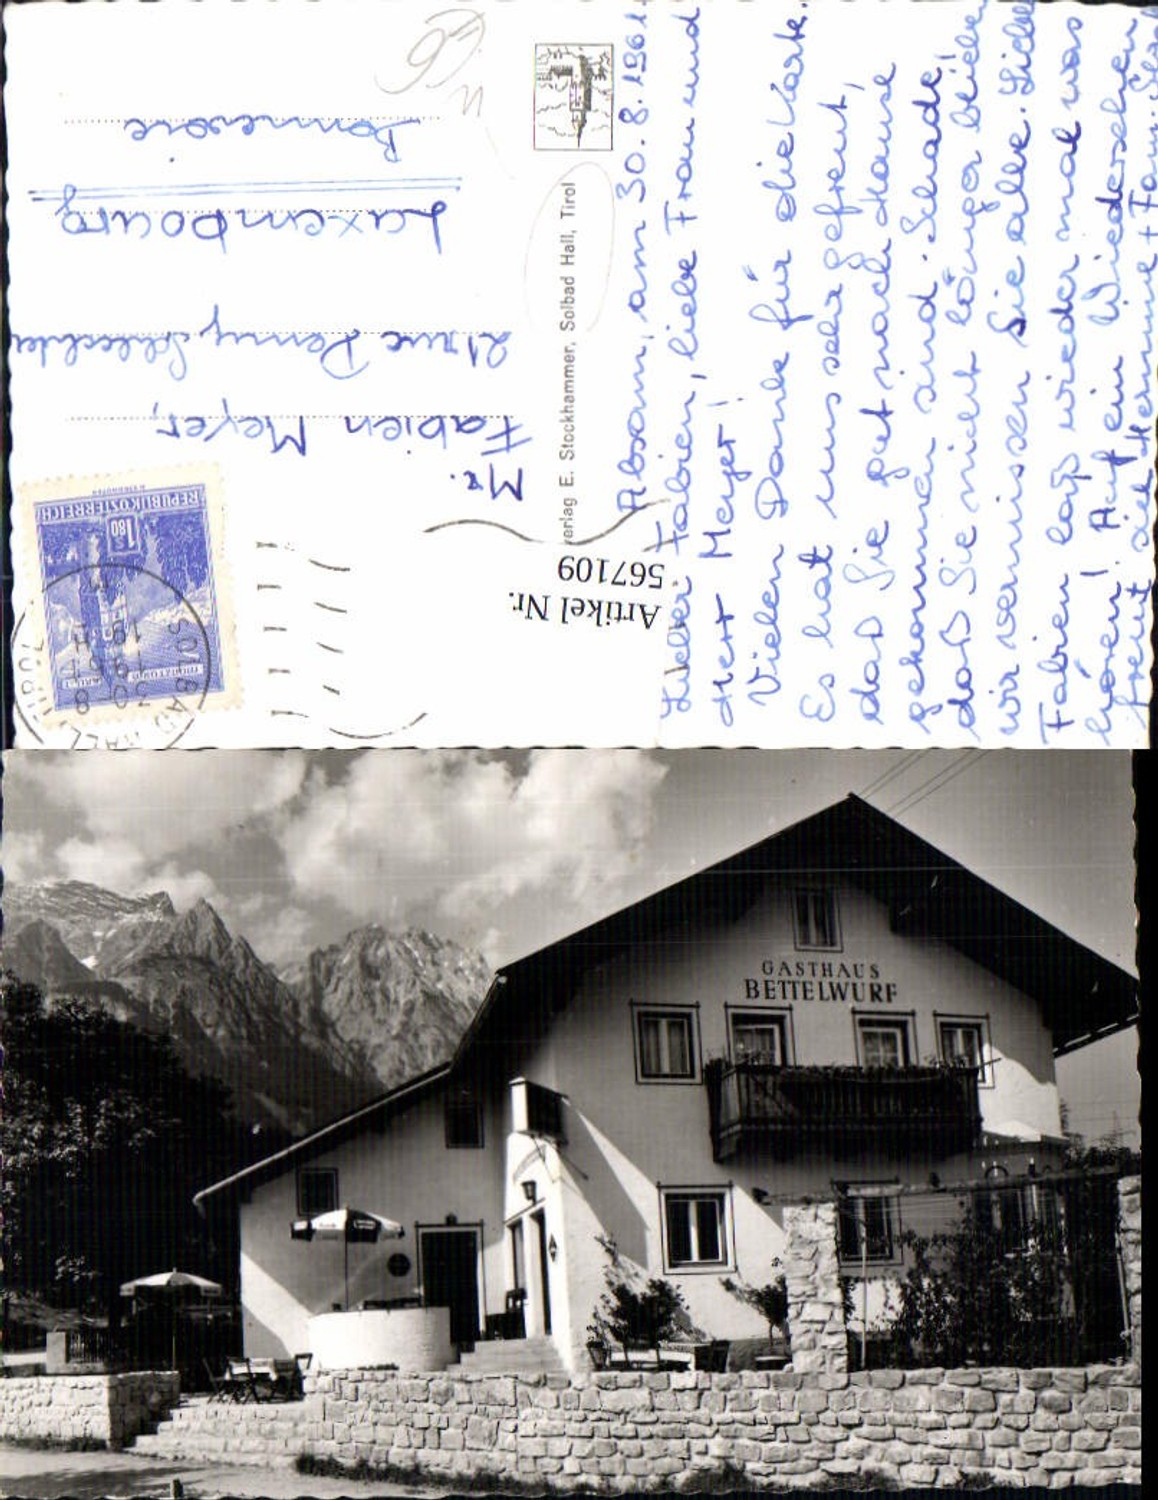 Absam, am 30.8.1961
Lieber Fabien, liebe Frau und
Herr Meyer!
Vielen Dank für die Karte.
Es hat uns sehr gefreut,
daß Sie gut nach Hause
gekommen sind. Schade,
daß Sie nicht länger bleiben
wir vermissen Sie alle. Lieber
Fabien laß wieder mal was
hören! Auf ein Wiedersehen
freut sich Hermine + Fam.
Verlag E. Stockhammer, Solbad Hall, Tirol
Mr.
Fabien Meyer,
Luxembourg
Bonnevoie
REPUBLIK ÖSTERREICH
1.80
SOLBAD HALL
Artikel Nr.
567109
GASTHAUS
BETTELWURF